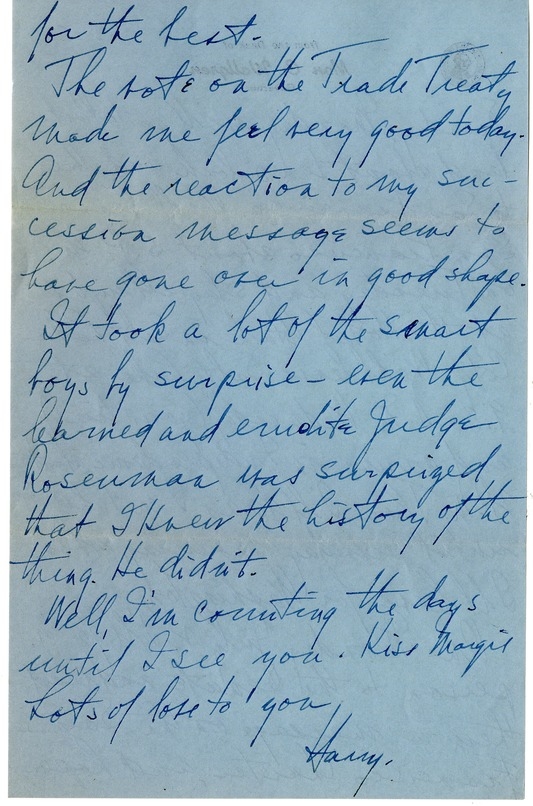 for the best.
The vote on the Trade Treaty
made me feel very good today.
And the reaction to my suc-
cession message seems to
have gone over in good shape.
It took a lot of the smart
boys by surprise – even the
learned and erudite Judge
Rosenman was surprized
that I knew the history of the
thing. He didn't.
Well, I'm counting the days
until I see you. Kiss Margie
Lots of love to you,
Harry.